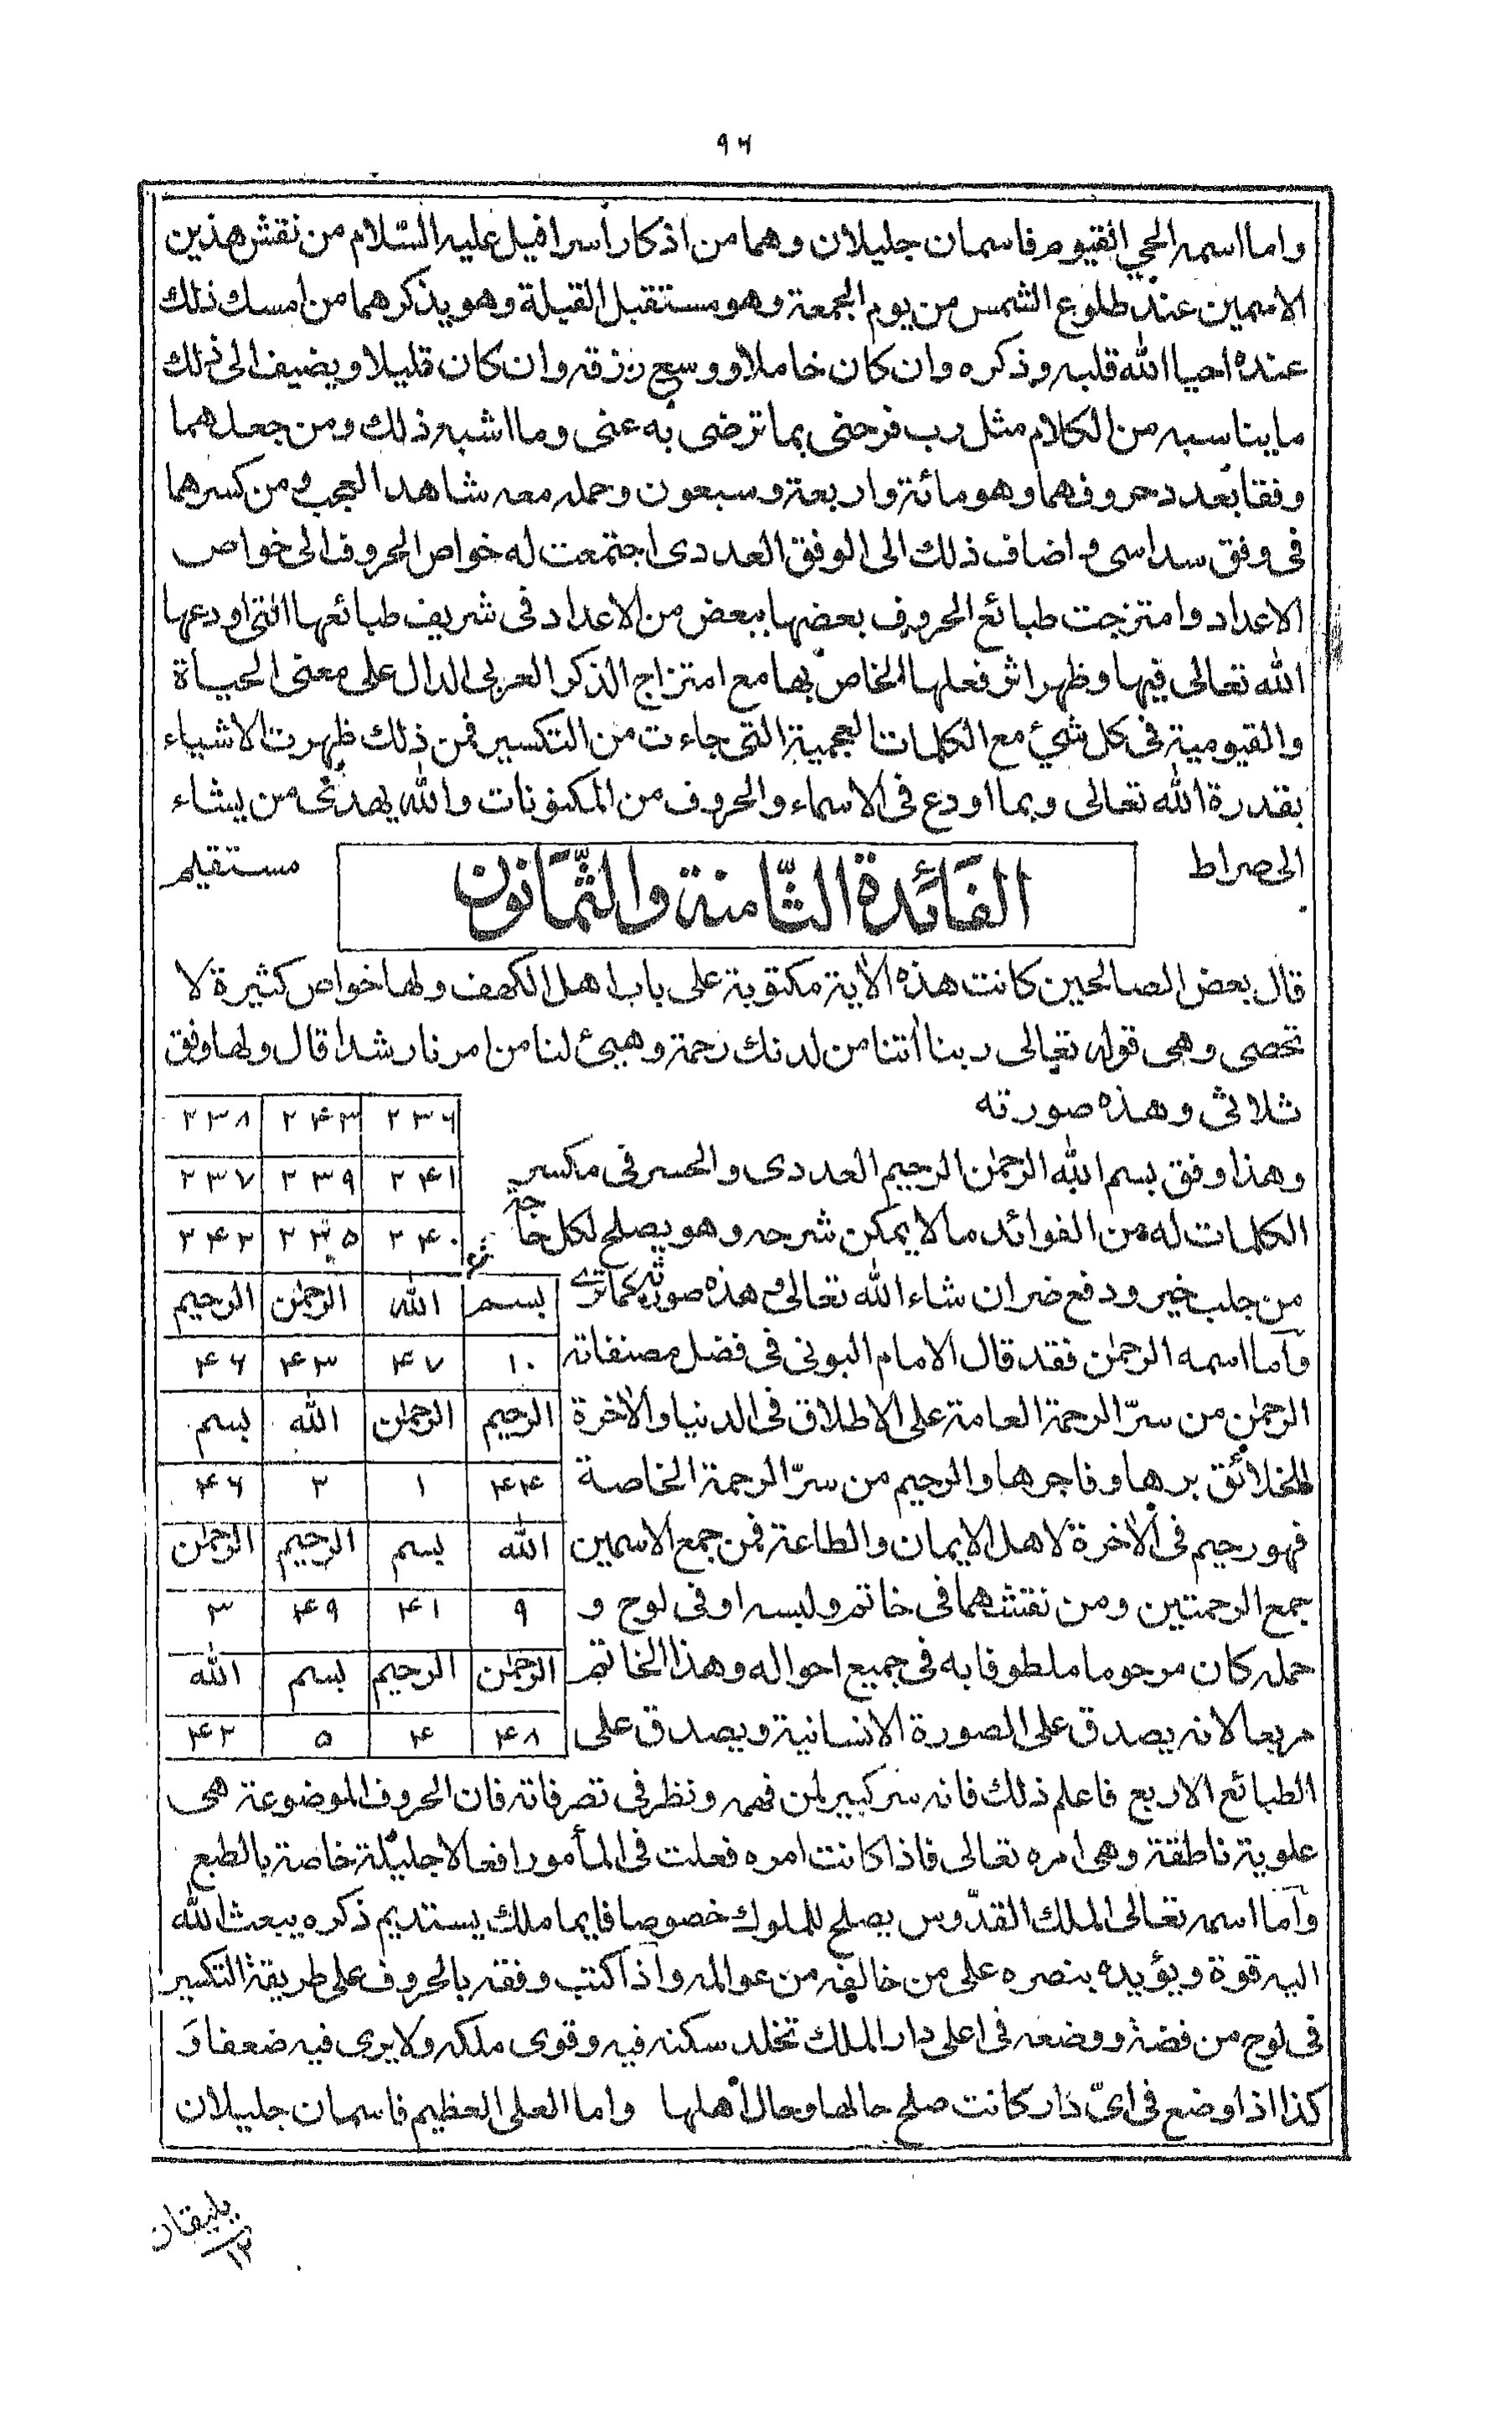 ٩٦
واما اسمه الحي القيوم فاسمان جليلان وهما من اذكار اسرافيل عليه السّلام من نقش هذين
الاسمين عند طلوع الشمس من يوم الجمعة وهو مستقبل القبلة وهو يذكرهما من امسك ذلك
عنده احيا الله قلبه وذكره وان كان خاملا ووسع رزقه وان كان قليلا ويضيف الى ذلك
ما يناسبه من الكلام مثل رب فرحنى بما ترضى به عنى وما اشبه ذلك ومن جعلهما
وفقا بعدد حروفهما وهو مائة واربعة وسبعون وحمله معه شاهد العجب ومن كسرهما
فى وفق سداسى واضاف ذلك الى الوفق العددى اجتمعت له خواص الحروف الى خواص
الاعداد وامتزجت طبائع الحروف بعضها ببعض من الاعداد فى شريف طبائعها التى اودعها
الله تعالى فيها وظهر اثر فعلها الخاص بها مع امتزاج الذكر العربى الدال على معنى الحياة
والقيومية فى كل شئ مع الكلمات العجمية التى جاءت من التكسير فمن ذلك ظهرت الاشياء
بقدرة الله تعالى وبما اودع فى الاسماء والحروف من المكنونات والله يهدى من يشاء
الى صراط مستقيم
الفَائدة الثّامنة والثّمَانون
قال بعض الصالحين كانت هذه الأية مكتوبة على باب اهل الكهف ولها خواص كثيرة لا
تحصى وهى قوله تعالى ربنا أتنا من لدنك رحمة وهيئ لنا من امرنا رشدا قال ولها وفق
ثلاثى وهذه صورته
٢٣٦ ٢٤٣ ٢٣٨
٢٤١ ٢٣٩ ٢٣٧
٢٤٠ ٢٣٥ ٢٤٢
وهذا وفق بسم الله الرحمٰن الرحيم العددى والحسر فى مكسر
الكلمات له من الفوائد ما لا يمكن شرحه وهو يصلح لكل حاجة
من جلب خير ودفع ضر ان شاء الله تعالى وهذه صورته كما ترى
وأما اسمه الرحمٰن فقد قال الامام البونى فى فضل مصنفاته
الرحمٰن من سرّ الرحمة العامة على الاطلاق فى الدنيا والأخرة
للخلائق برها وفاجرها والرحيم من سرّ الرحمة الخاصة
فهو رحيم فى الأخرة لاهل الايمان والطاعة فمن جمع الاسمين
جمع الرحمتين ومن نقشهما فى خاتم ولبسه او فى لوح و
حمله كان مرحوما ملطوفا به فى جميع احواله وهذا الخاتم
مربعا لانه يصدق على الصورة الانسانية ويصدق على
بسم الله الرحمٰن الرحيم
١٠ ٤٧ ٤٣ ٤٦
الرحيم الرحمٰن الله بسم
٤٤ ١ ٣ ٤٦
الله بسم الرحيم الرحمٰن
٩ ٤١ ٤٩ ٣
الرحمٰن الرحيم بسم الله
٤٨ ٤ ٥ ٤٢
الطبائع الاربع فاعلم ذلك فانه سر كبير لمن فهمه ونظر فى تصرفاته فان الحروف الموضوعة هى
علوية ناطقة وهى امره تعالى فاذا كانت امره فعلت فى المأمور افعالا جليلة خاصة بالطبع
وأما اسمه تعالى الملك القدّوس يصلح للملوك خصوصا فايما ملك يستديم ذكره يبعث الله
اليه قوة ويؤيده بنصره على من خالفه من عوالمه واذا كتب وفقه بالحروف على طريقة التكسير
فى لوح من فضة ووضعه فى اعلى دار الملك تخلد سكنه فيه وقوى ملكه ولا يرى فيه ضعفا وَ
كذا اذا وضع فى اىّ دار كانت صلح حالها وحال أهلها واما العلى العظيم فاسمان جليلان
يليقان
١٢